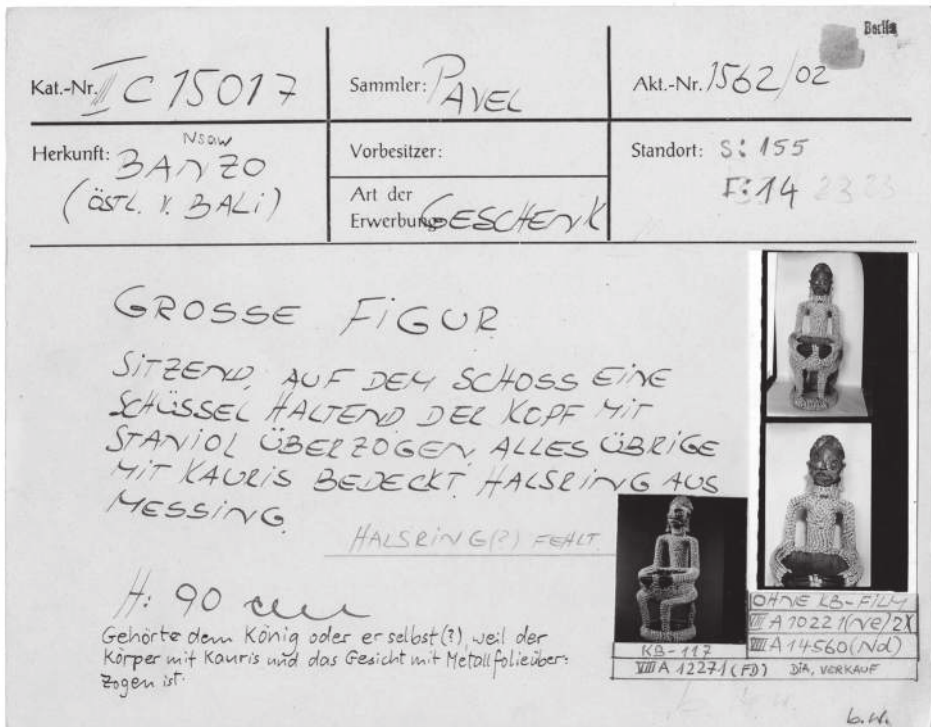 Berlin
Kat.-Nr. III C 15017
Sammler: PAVEL
Akt.-Nr. 1562/02
Herkunft: Nsaw
BANZO
(ÖSTL. V. BALI)
Vorbesitzer:
Art der
Erwerbung GESCHENK
Standort: S: 155
F: 14 23 23
GROSSE FIGUR
SITZEND, AUF DEM SCHOSS EINE
SCHÜSSEL HALTEND DER KOPF MIT
STANIOL ÜBERZOGEN, ALLES ÜBRIGE
MIT KAURIS BEDECKT. HALSRING AUS
MESSING.
HALSRING(?) FEHLT.
H: 90 cm
Gehörte dem König oder er selbst(?), weil der
Körper mit Kauris und das Gesicht mit Metallfolie über:
zogen ist.
KB-117
VIII A 12271 (FD)
OHNE KB-FILM
VIII A 10221 (Ne)/2X
VIII A 14560 (Nd)
DIA, VERKAUF
b.w.